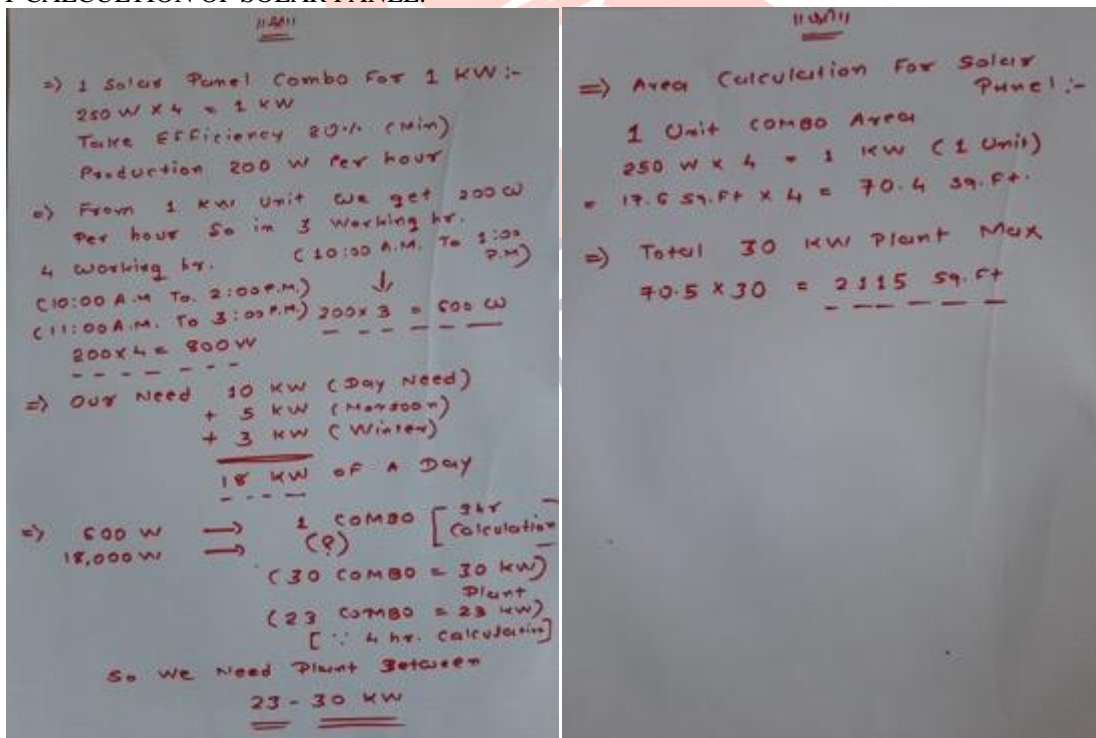 CALCULTION OF SOLAR PANEL:
=> 1 Solar Panel Combo For 1 KW :-
250 W X 4 = 1 KW
Take Efficiency 20% (Min)
Production 200 W Per hour
=> From 1 KW Unit we get 200 W
Per hour So in 3 Working hr.
4 Working hr. (10:00 A.M. To 1:00 P.M)
(10:00 A.M To. 2:00 P.M.)
(11:00 A.M. To 3:00 P.M.) 200 x 3 = 600 W
200 x 4 = 800 W
=> Our Need 10 KW (Day Need)
+ 5 KW (Monsoon)
+ 3 KW (Winter)
18 KW OF A Day
=> 600 W → 1 COMBO [3hr Calculation]
18,000 W → (?)
(30 COMBO = 30 KW) Plant
(23 COMBO = 23 KW)
[∵ 4 hr. Calculation]
So We Need Plant Between
23 - 30 KW
=> Area Calculation For Solar
Panel :-
1 Unit COMBO Area
250 W x 4 = 1 KW (1 Unit)
= 17.6 Sq.Ft x 4 = 70.4 Sq.Ft.
=> Total 30 KW Plant Max
70.5 x 30 = 2115 Sq.Ft